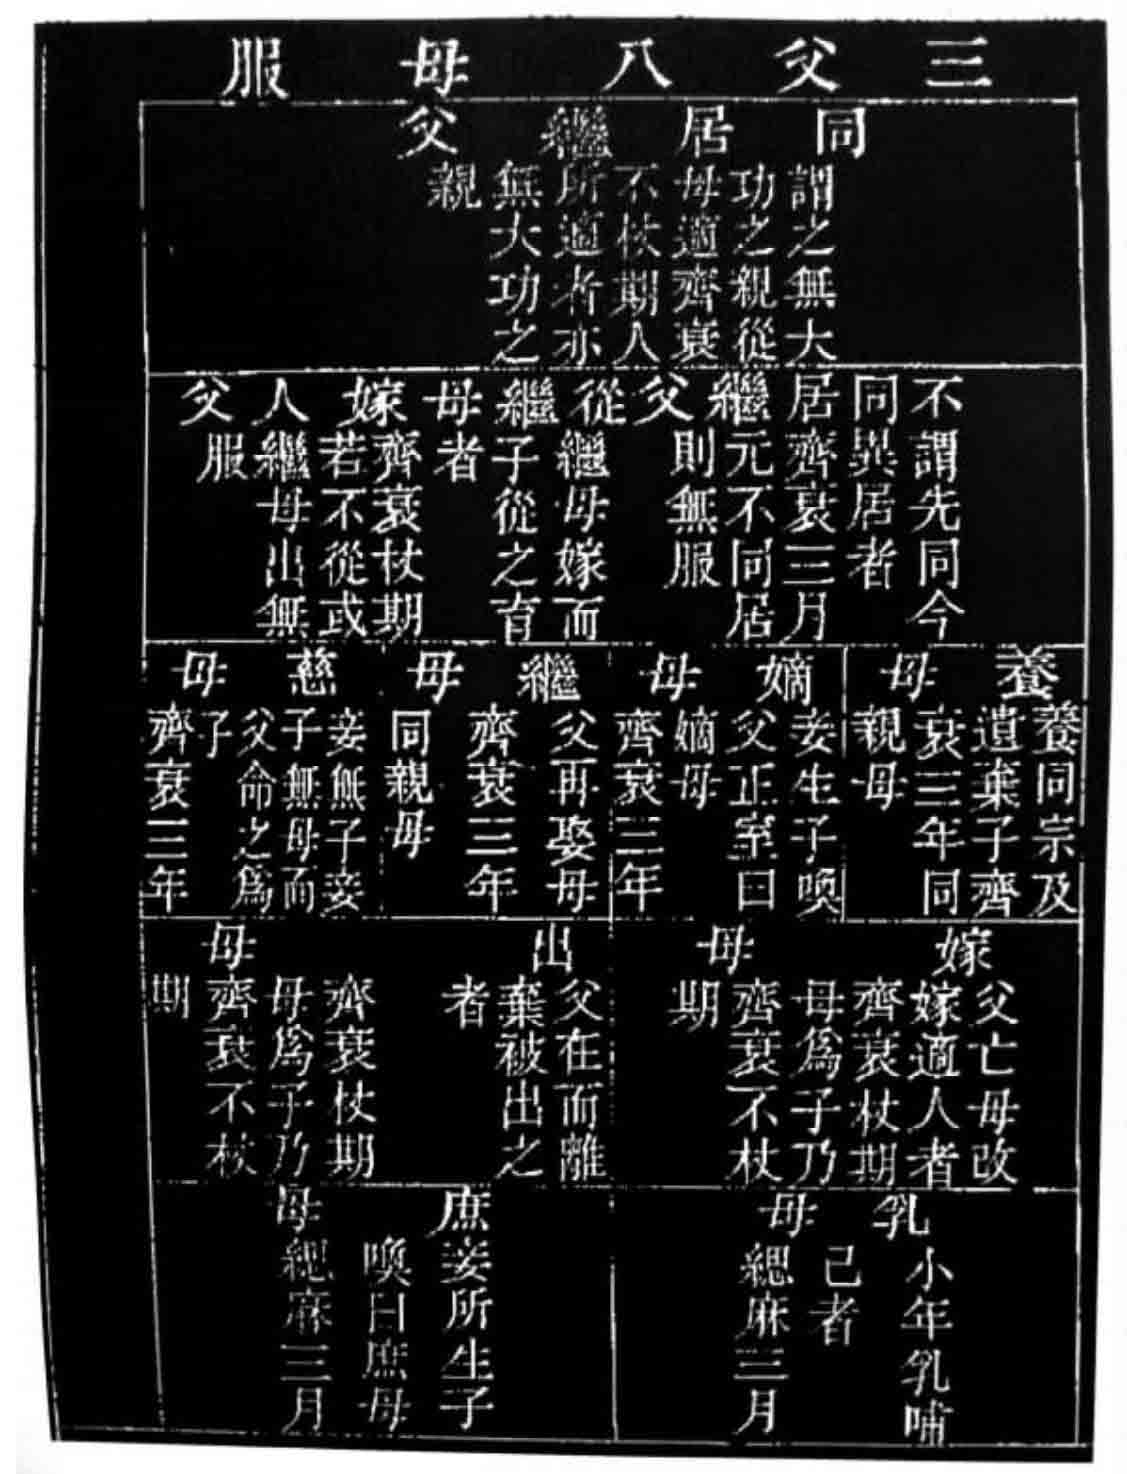 三父八母服
同居繼父
謂之無大
功之親從
母適齊衰
不杖期人
所適者亦
無大功之
親
不同居繼父
謂先同今
異居者
齊衰三月
元不同居
則無服
從繼母嫁人父
繼母嫁而
子從之育
者
齊衰杖期
若不從或
繼母出無
服
養母
養同宗及
遺棄子齊
衰三年同
親母
嫡母
妾生子喚
父正室曰
嫡母
齊衰三年
繼母
父再娶母
齊衰三年
同親母
慈母
妾無子妾
子無母而
父命之爲
子
齊衰三年
嫁母
父亡母改
嫁適人者
齊衰杖期
母爲子乃
齊衰不杖
期
出母
父在而離
棄被出之
者
齊衰杖期
母爲子乃
齊衰不杖
期
乳母
小年乳哺
己者
緦麻三月
庶母
妾所生子
喚曰庶母
緦麻三月